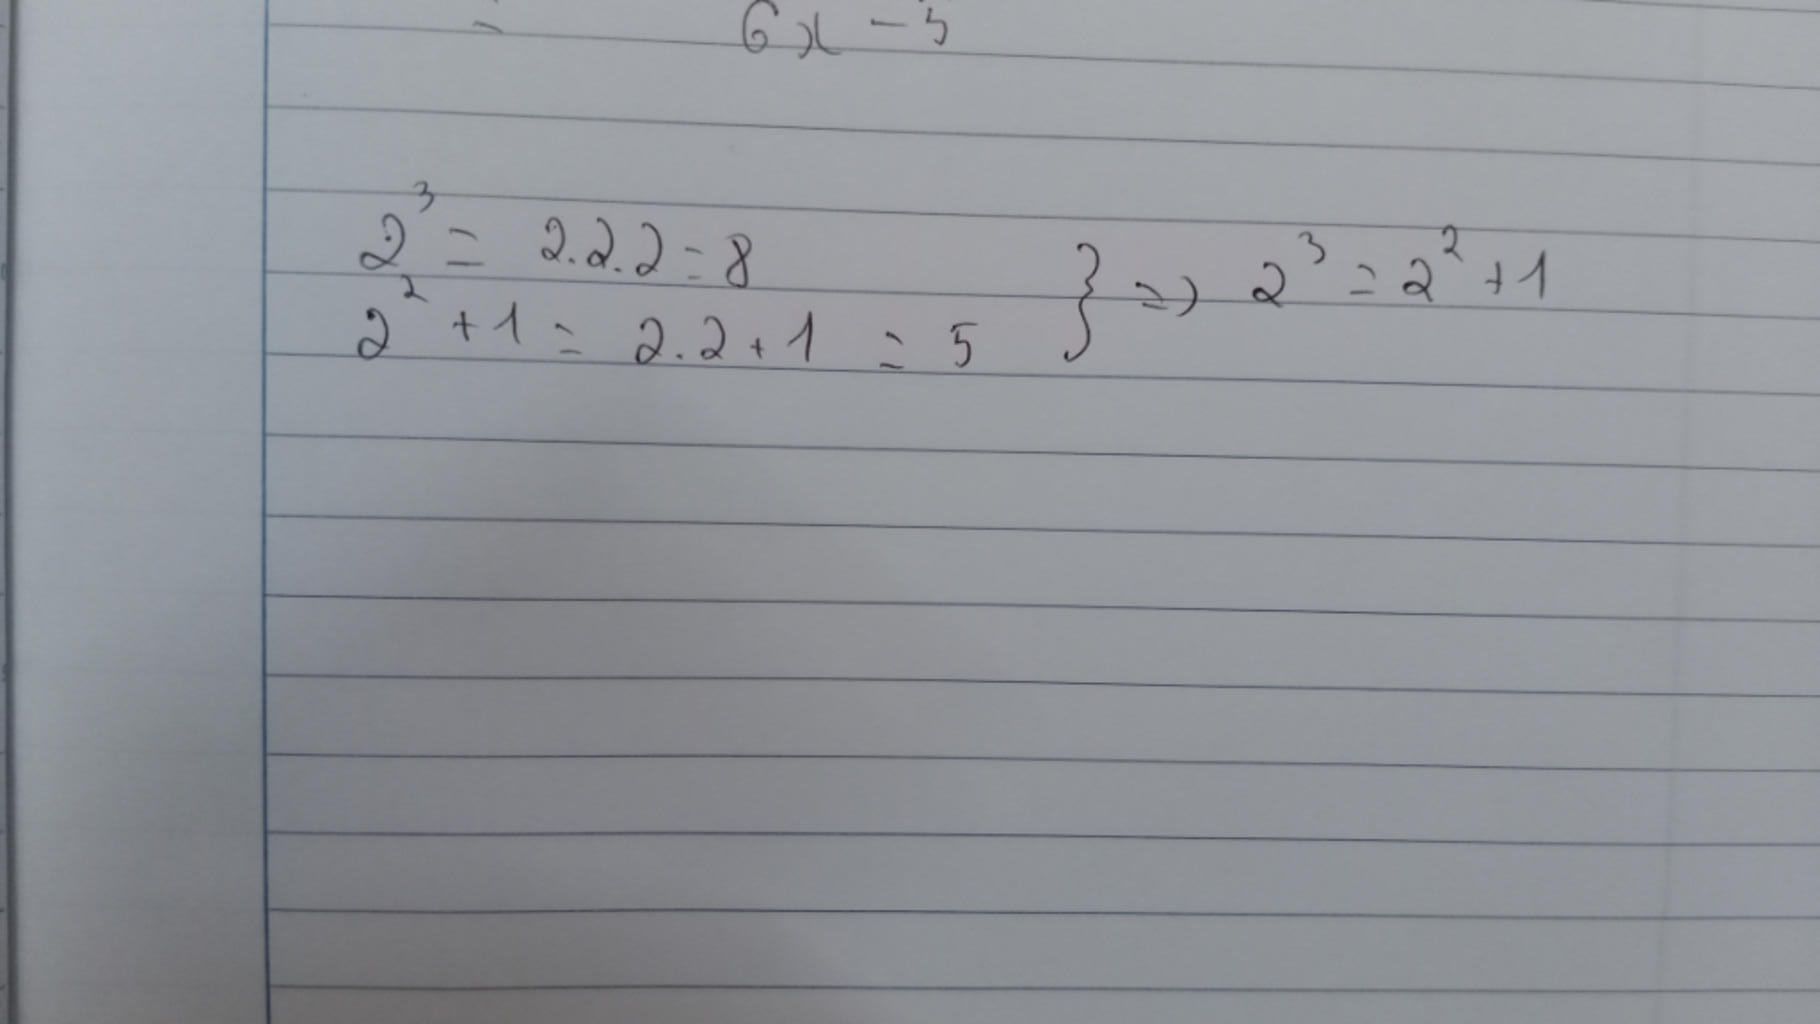 = 6x - 5
2³ = 2.2.2 = 8
2² + 1 = 2.2 + 1 = 5 } => 2³ = 2² + 1